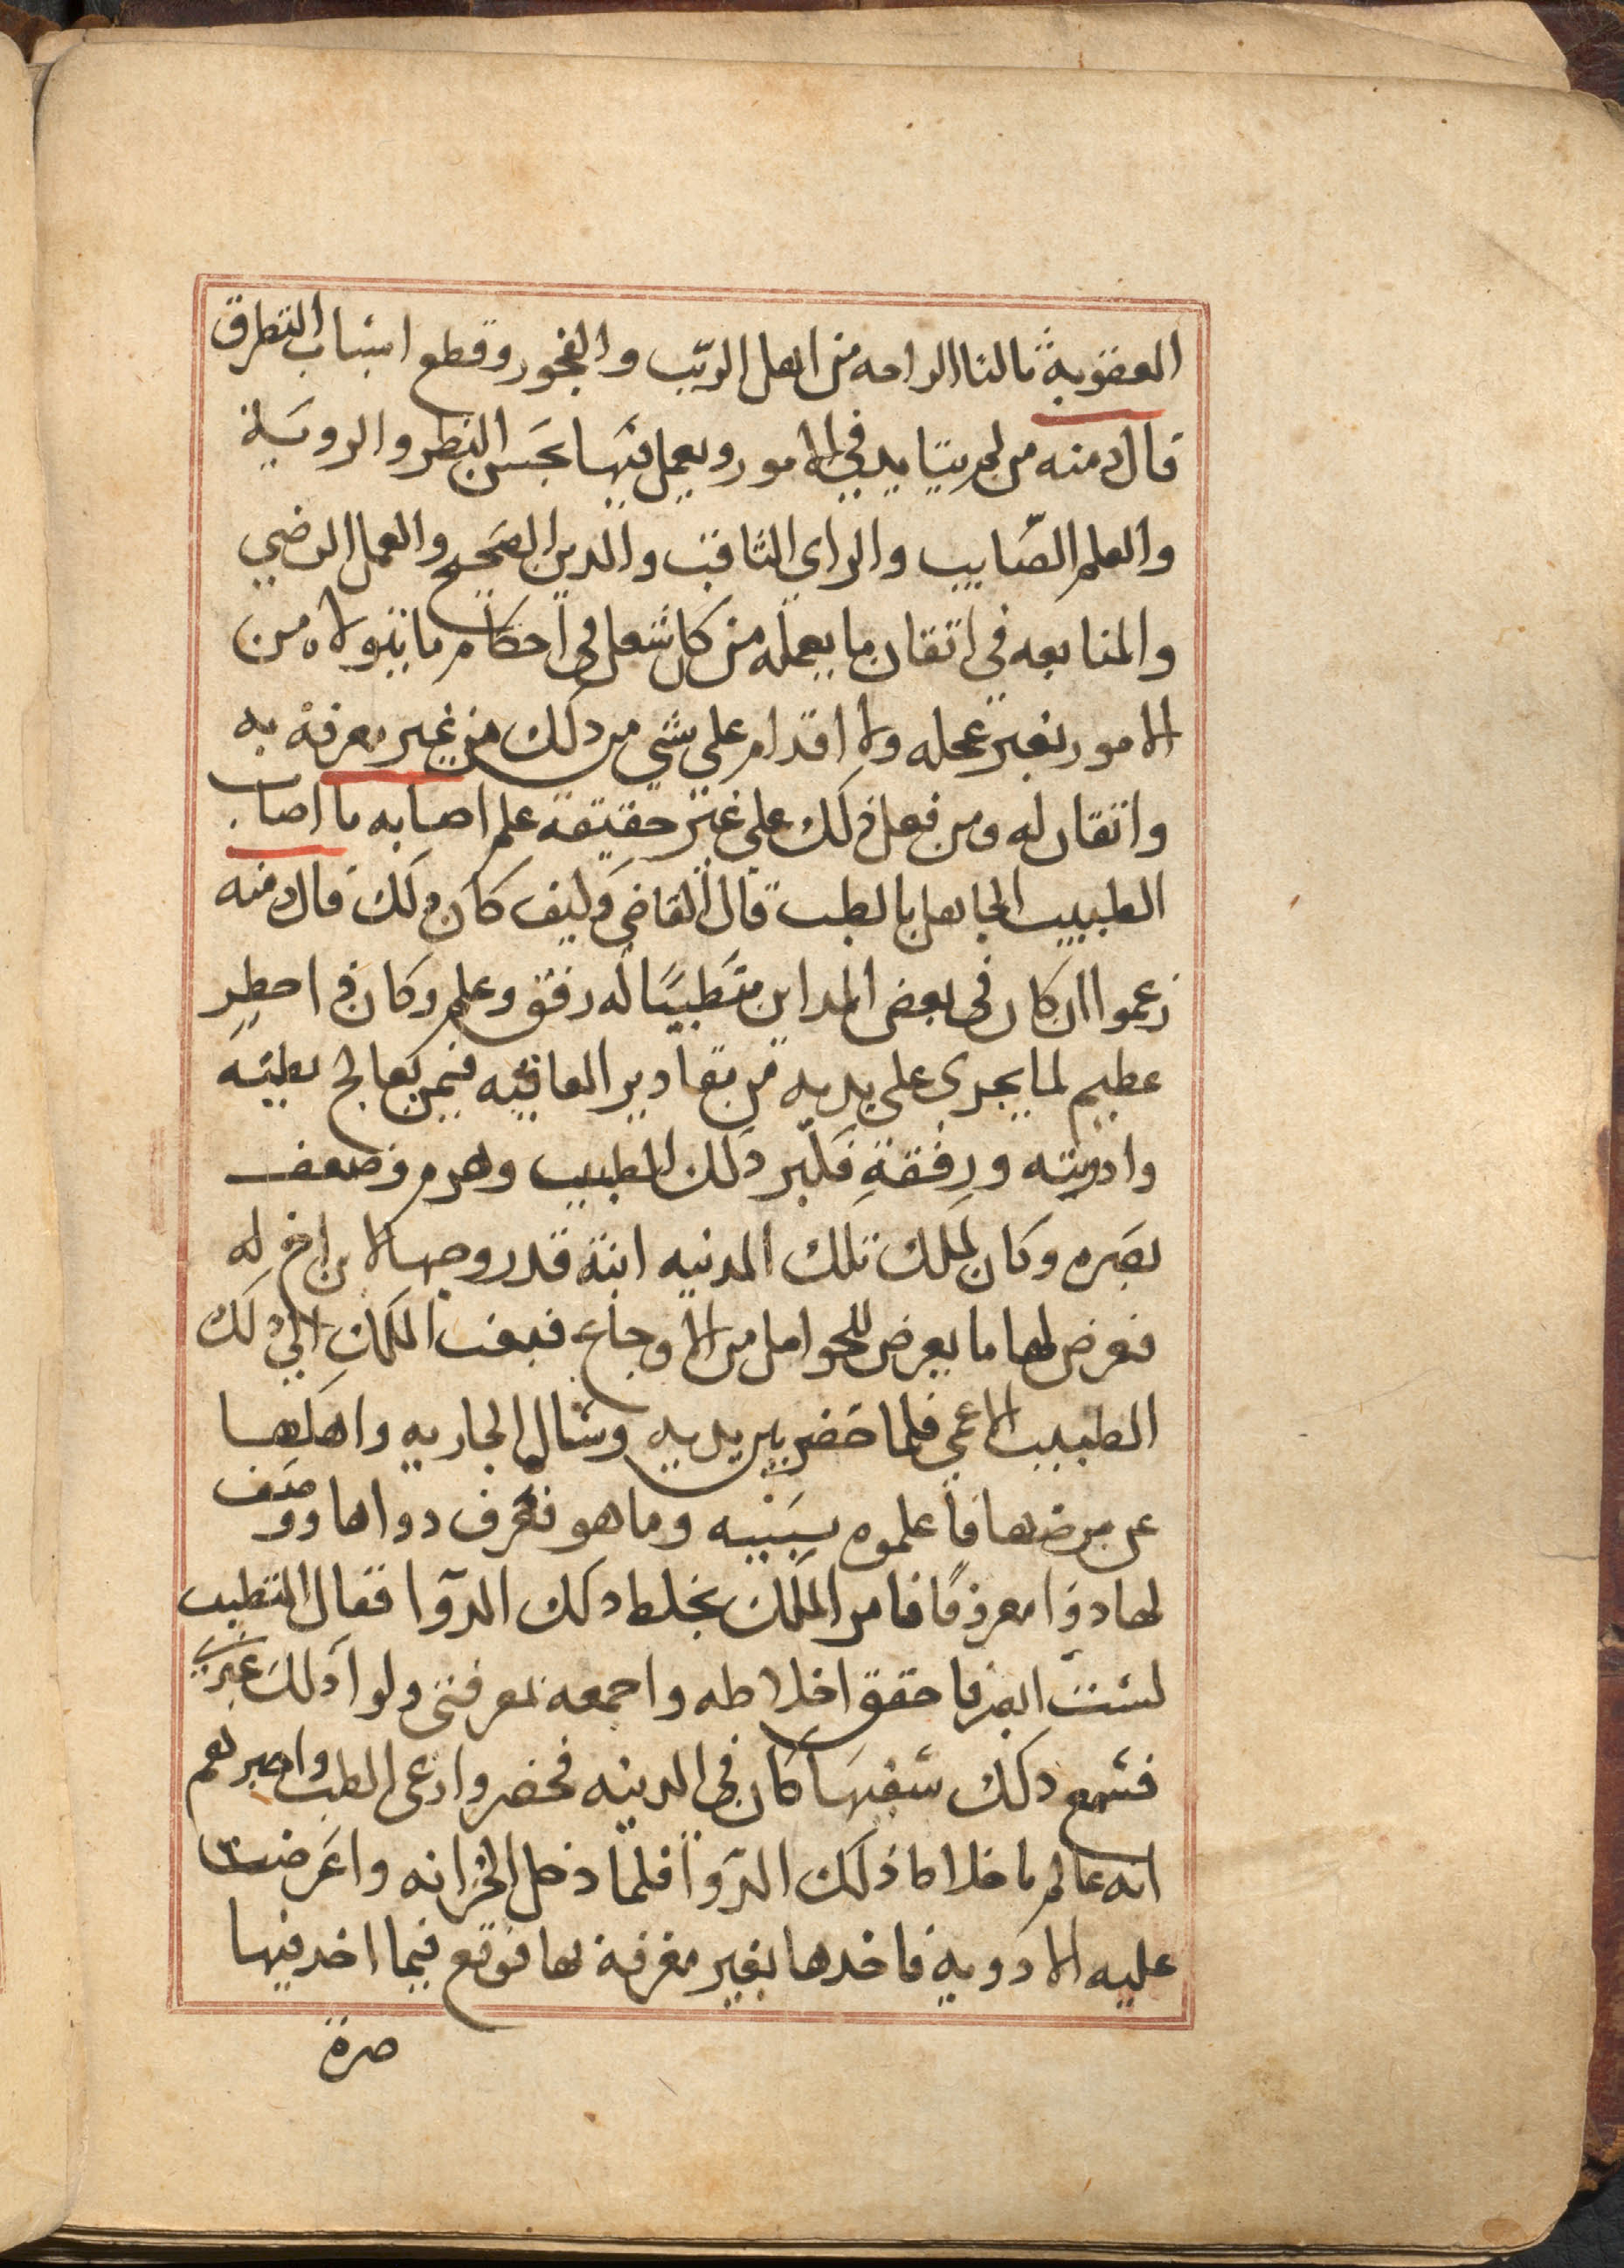 العقوبة ثالثا الراحه من اهل الريب والفجور وقطع اسباب التطرق
قال دمنه من لم يتايد في الامور ويعمل فيها بحسن النظر والرويه
والعلم الصّايب والراي الثاقب والدين الصحيح والعمل الرضي
والمنابعه في اتقان ما يعمله من كل شغل في احكام ما يتولاه من
الامور بغير عجله ولا اقدام على شي من ذلك من غير معرفة به
واتقان له ومن فعل ذلك على غير حقيقة علم اصابه ما اصاب
الطبيب الجاهل بالطب قال القاضي وكيف كان ذلك قال دمنه
زعموا ان كان في بعض المداين متطببًا له رفق وعلم وكان ذا حطر
عظيم لما يجرى على يديه من مقادير العافيه فيمن يعالج بطبه
وادويته ورفقةِ فكبر ذلك المطبيب وهرم وضعف
بصره وكان لملك تلك المدنيه ابنة قد زوجها لابن اخ له
فعرض لها ما يعرض للحوامل من الاوجاع فبعث الملك الي ذلك
الطبيب الاعمي فلما حضر بين يديه وسال الجاريه واهلها
عن مرضها فاعلموه بسببه وما هو فعرف دواها ووصف
لها دوا معروفًا فامر الملك بخلط دلك الدوآ فقال المتطبب
لست ابصر فاحقق اخلاطه واجمعه بمعرفتى ولو ا دلك غيري
فسمع دلك سفيها كان في المدينه فحضر وادعى الطب واخبرهم
انه عالم باخلاط ذلك الدّوا فلما دخل الخزانه واعرضت
عليه الادويه فاخدها بغير معرفة لها فوقع فيما اخد فيها
صرة